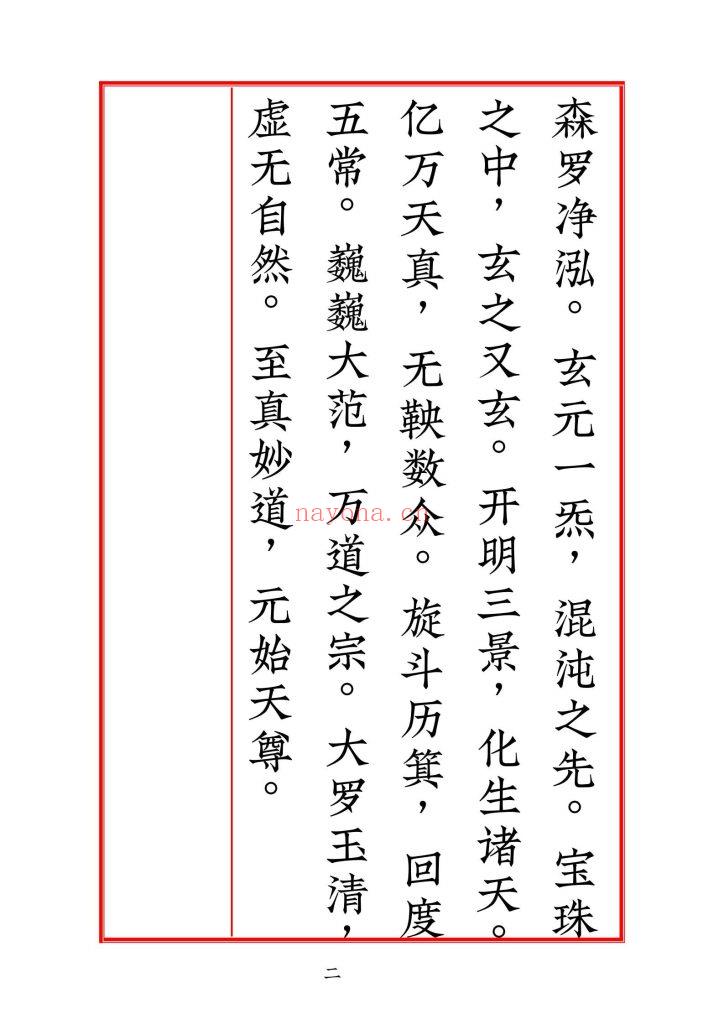 森罗净泓。玄元一炁，混沌之先。宝珠
之中，玄之又玄。开明三景，化生诸天。
亿万天真，无鞅数众。旋斗历箕，回度
五常。巍巍大范，万道之宗。大罗玉清，
虚无自然。至真妙道，元始天尊。
nayona.cn
二